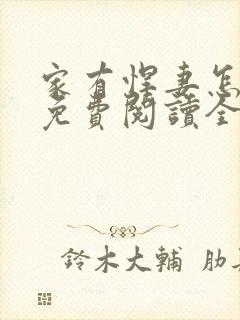 家有悍妻怎
免費閱讀全
鈴木大輔 肋